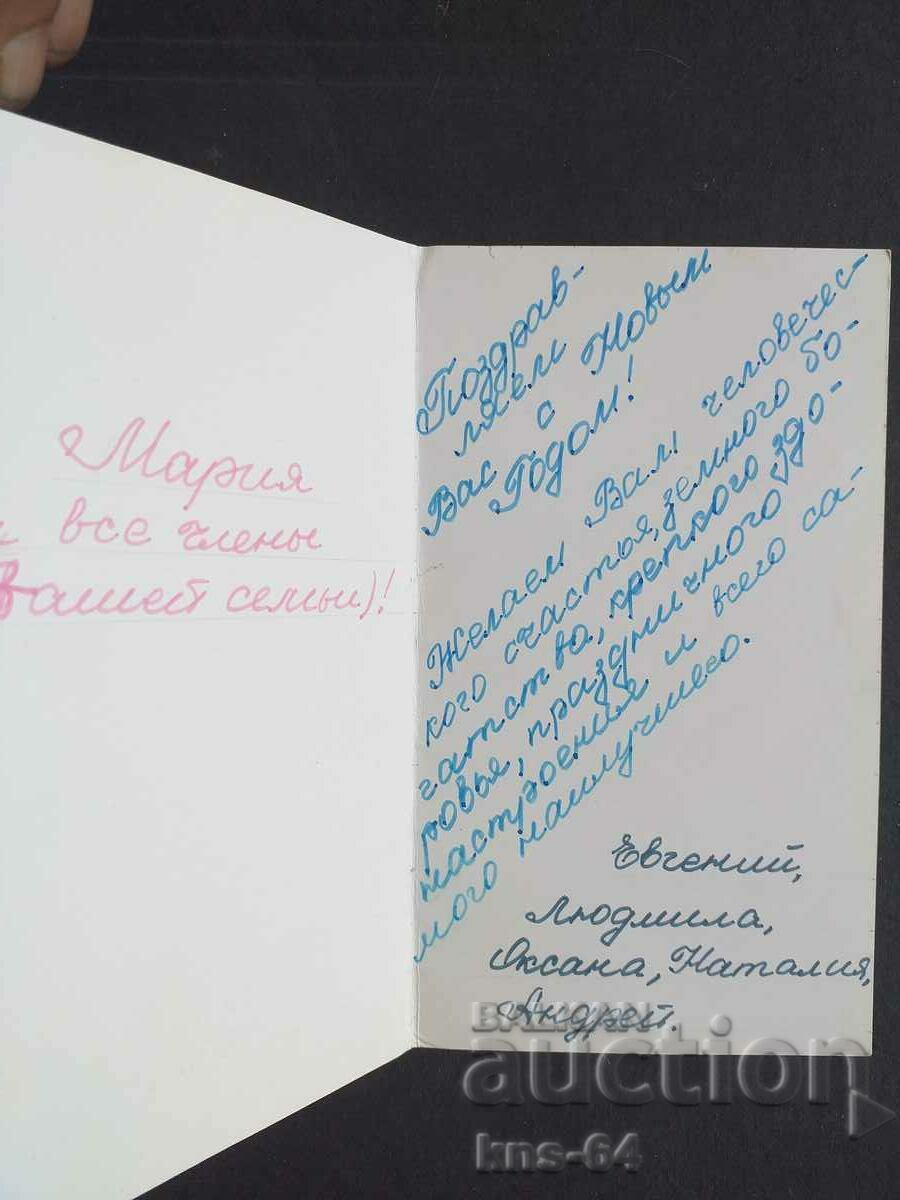 Мария
и все члены
Вашей семьи)!
Поздрав-
ляем
Вас с Новым
Годом!
Желаем Вам человечес-
кого счастья, земного бо-
гатства, крепкого здо-
ровья, праздничного
настроения и всего са-
мого наилучшего.
Евгений,
Людмила,
Оксана, Наталия,
Андрей.
BALKAN
auction
kns-64